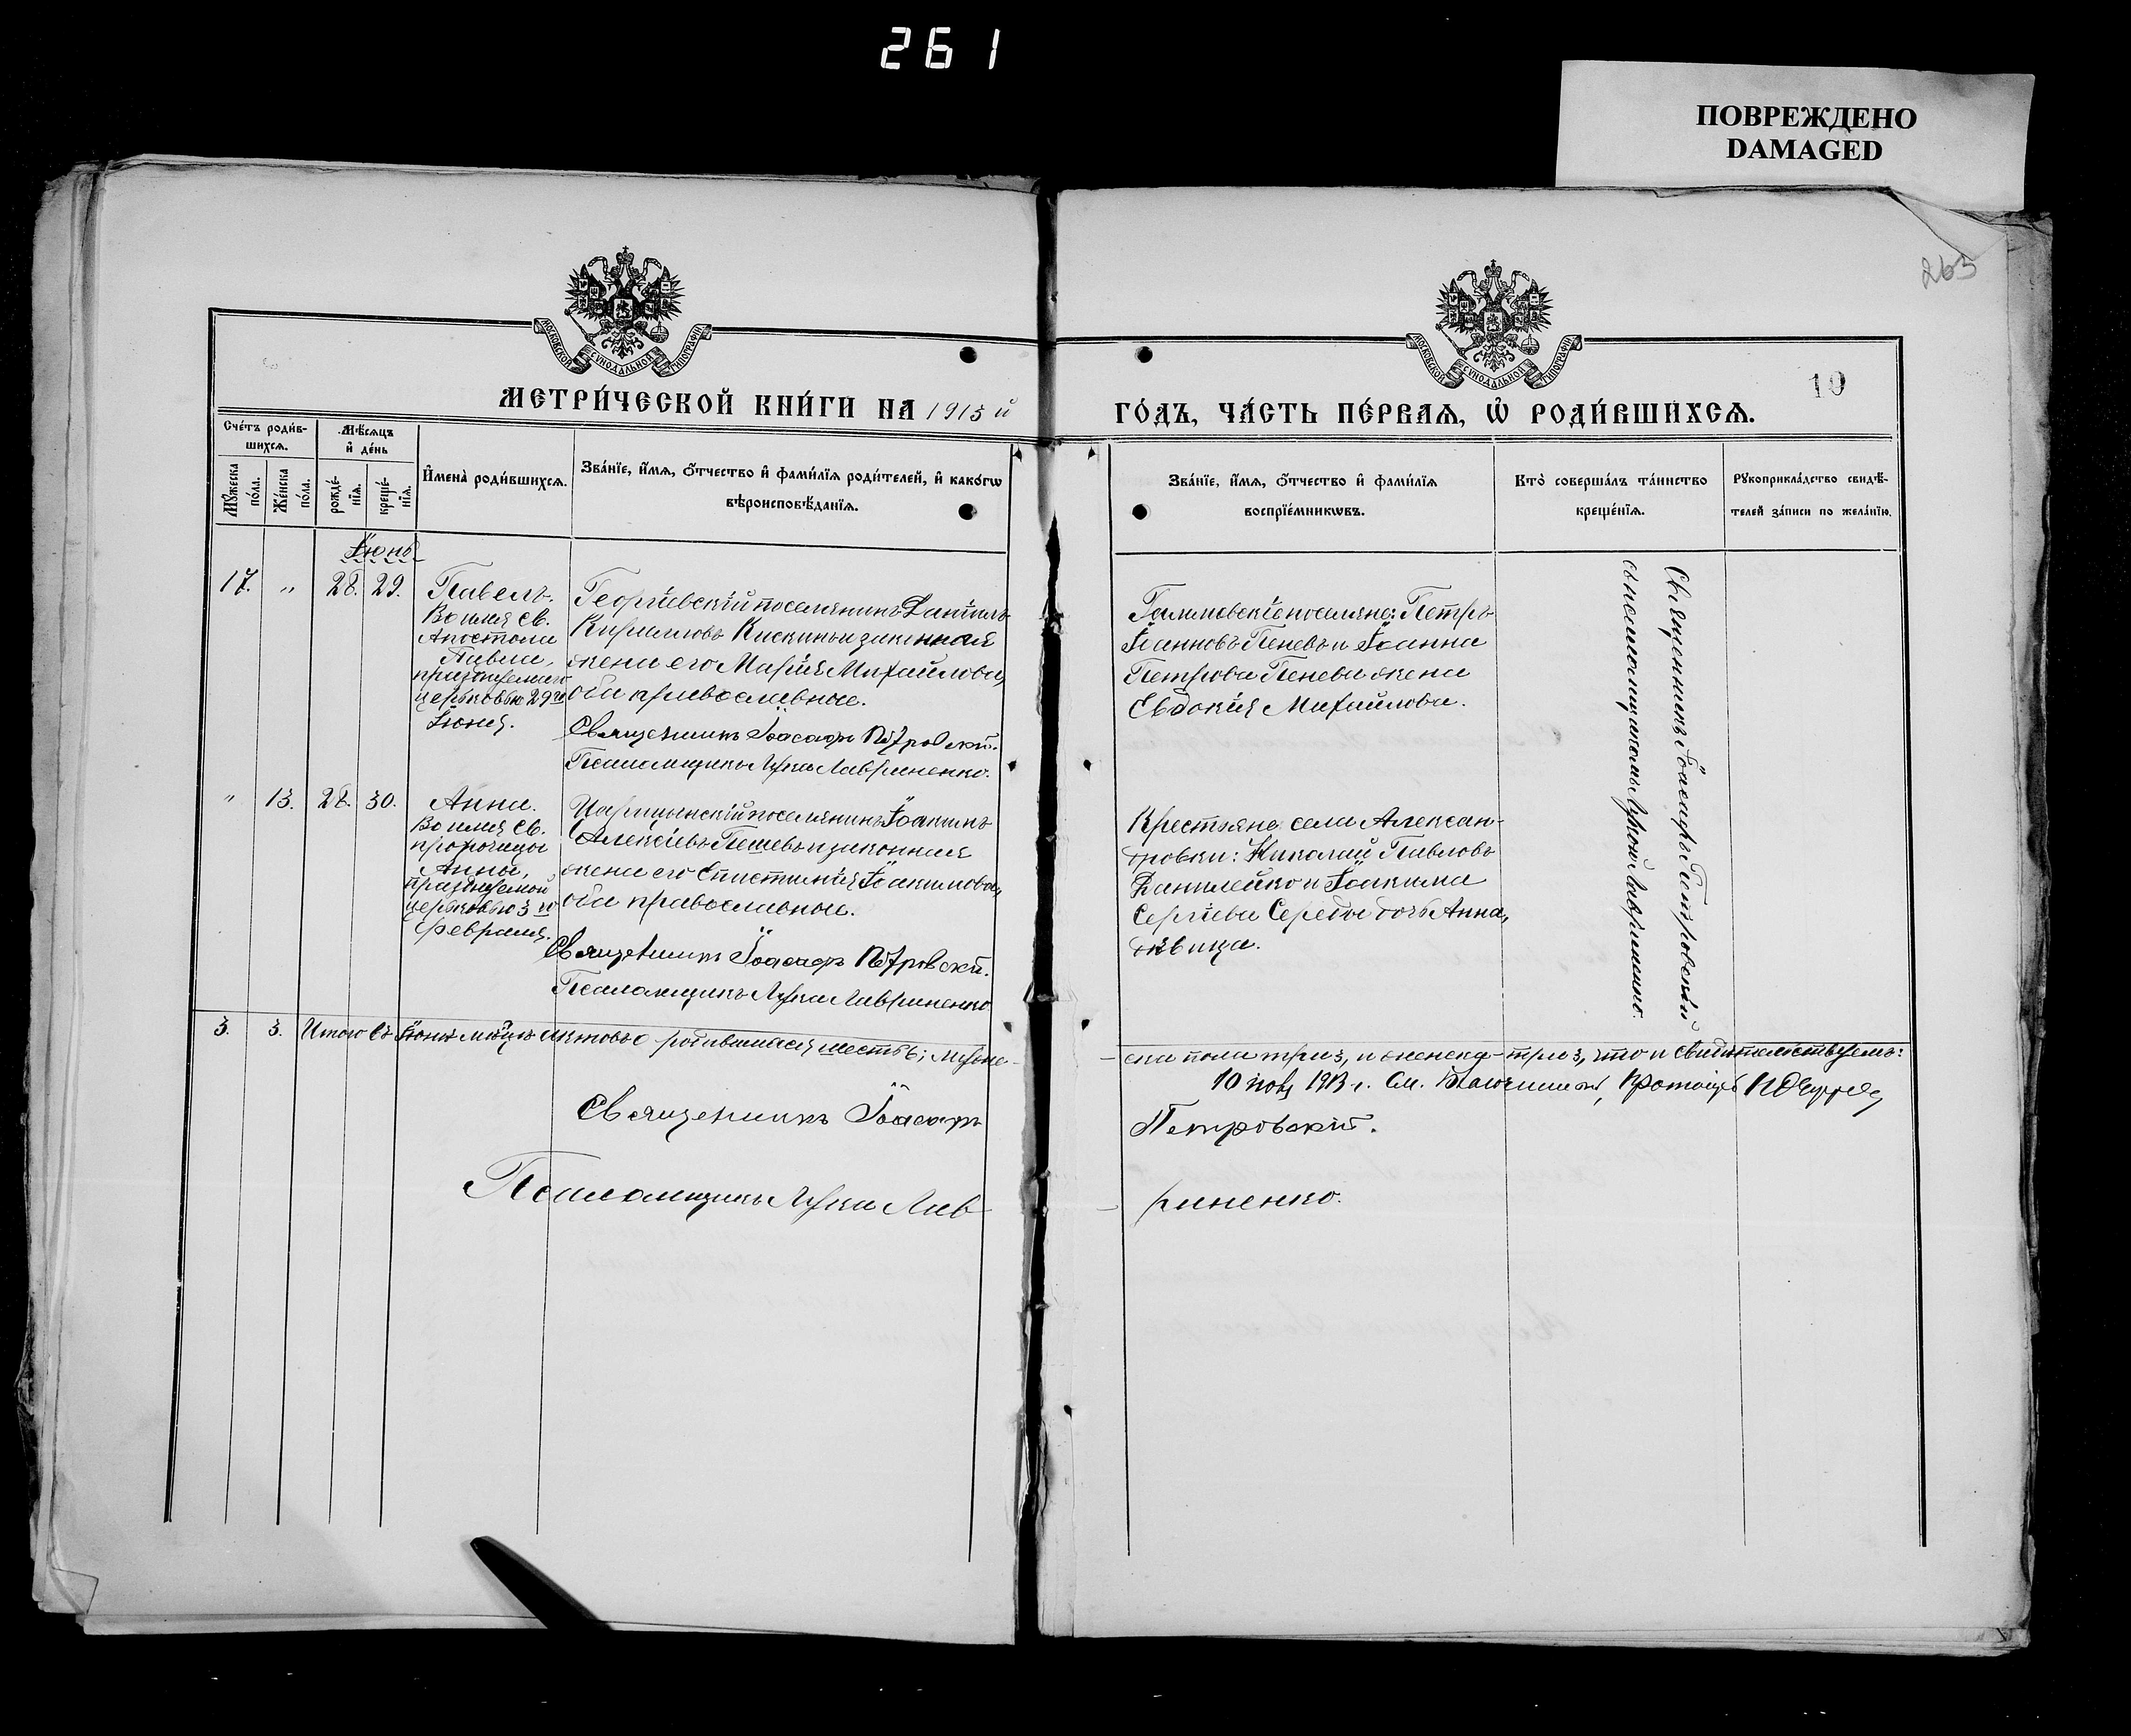 261
ПОВРЕЖДЕНО
DAMAGED
263
МОСКОВСКОЙ СѴНОДАЛЬНОЙ ТИПОГРАФІИ
МОСКОВСКОЙ СѴНОДАЛЬНОЙ ТИПОГРАФІИ
19
МЕТРИ́ЧЕСКОЙ КНИ́ГИ НА 1913 й
ГО́ДЪ, ЧА́СТЬ ПЕ́РВАѦ, Ѡ҆ РОДИ́ВШИХСѦ.
Сче́тъ роди́в-
шихсѧ.
Мѣ́сѧцъ
и҆ де́нь
Мꙋ́жеска
по́ла.
Же́нска
по́ла.
рожде́-
нїѧ.
креще́-
нїѧ.
И҆мена̀ роди́вшихсѧ.
Зва́нїе, и҆́мѧ, ѻ҆́тчество и҆ фами́лїѧ роди́телей, и҆ како́гѡ
вѣроисповѣ́данїѧ.
Зва́нїе, и҆́мѧ, ѻ҆́тчество и҆ фами́лїѧ
воспрїе́мникѡвъ.
Кто̀ соверша́лъ та́инство
креще́нїѧ.
Рꙋкоприкла́дство свидѣ́-
телей за́писи по жела́нїю.
Іюнь
17. " 28. 29. Павелъ.
Во имя св.
Апостола
Павла,
празднуемаго
церковью 29 го
Іюня.
Георгіевскій поселянинъ Даніилъ
Кирилловъ Кискинъ и законная
жена его Марія Михайлова,
оба православные.
Священникъ Іоасафъ Петровскій.
Псаломщикъ Лука Лавриненко.
Галиловскіе поселяне: Петръ
Іоанновъ Пеневъ и Іоанна
Петрова Пенева жена
Евдокія Михайлова.
Священникъ Іоасафъ Петровскій
съ псаломщикомъ Лукой Лавриненко.
" 13. 28. 30. Анна.
Во имя св.
пророчицы
Анны,
празднуемой
церковью 3 го
февраля.
Царицынскій поселянинъ Іоакимъ
Алексіевъ Пешевъ и законная
жена его Епистимія Іоакимова,
оба православные.
Священникъ Іоасафъ Петровскій.
Псаломщикъ Лука Лавриненко
Крестьяне села Алексан-
дровки: Николай Павловъ
Данилейко и Іоакима
Сергіева Середы дочь Анна,
дѣвица.
3. 3. Итого въ Іюнѣ мѣсяцѣ актовъ о родившихся шесть; муже-
ска пола три 3, и женска - три 3, что и свидѣтельствуемъ:
10 нояб 1913 г. См. Благочинный, Протоіерей
Священникъ Іоасафъ
Петровскій.
Псаломщикъ Лука Лав-
риненко.